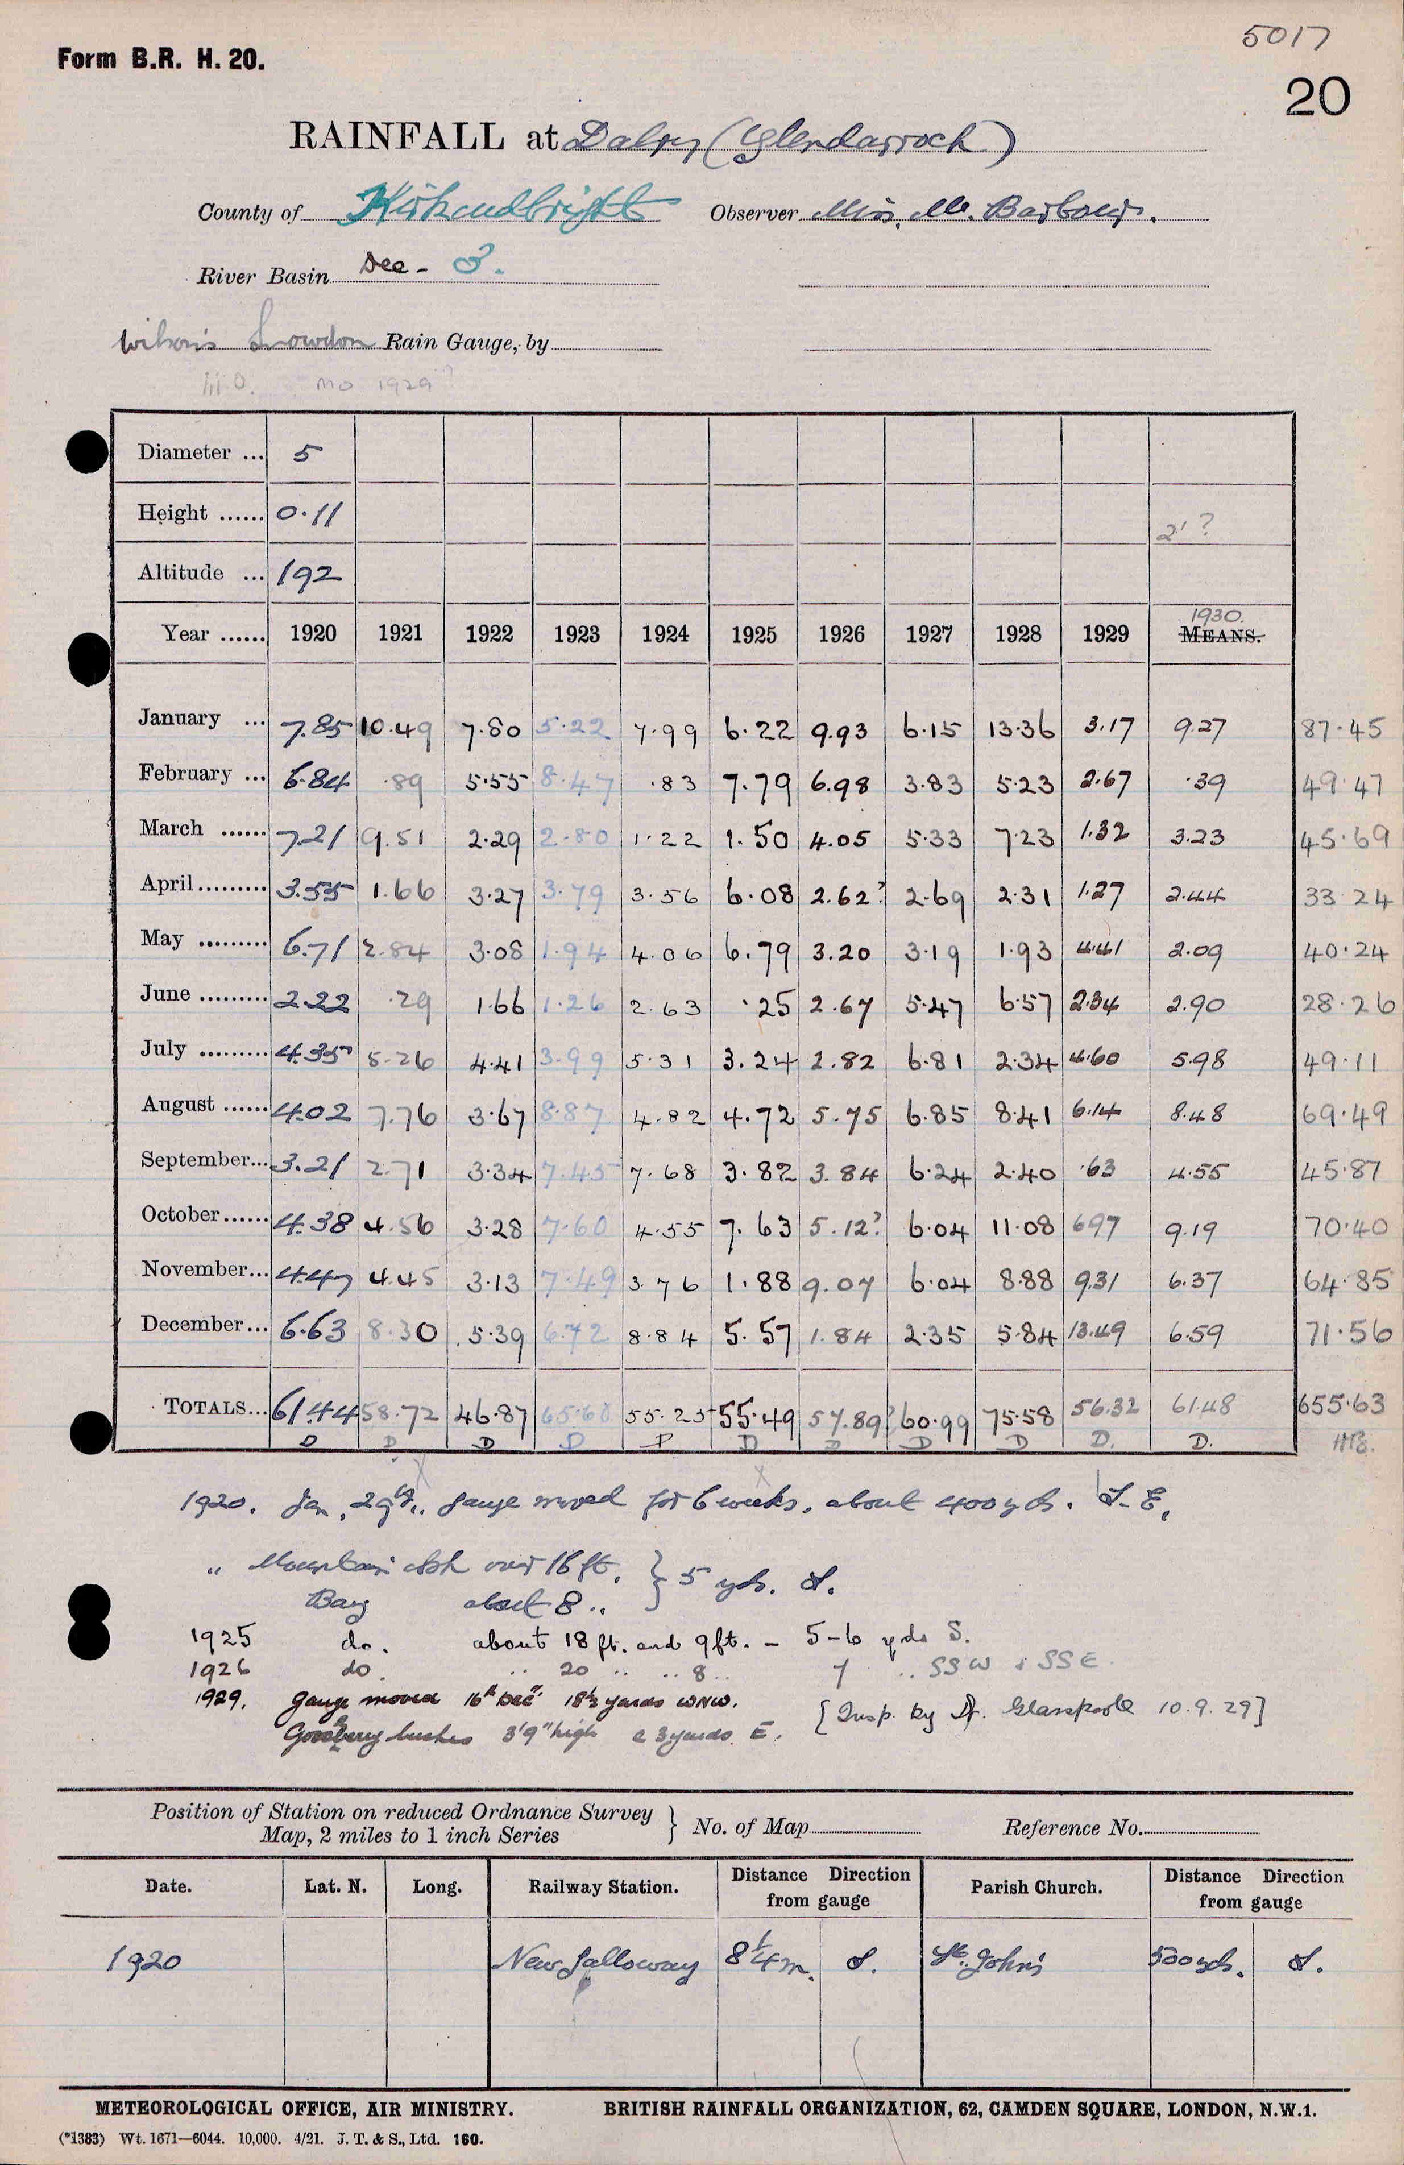 5017
Form B.R. H. 20.
20
RAINFALL at Dalry (Glendarroch)
County of Kirkcudbright Observer Miss M. Barbour.
River Basin Dee - 3.
Wilson's Snowdon Rain Gauge, by
M.O. MO 1929?
Diameter ... 5
Height ...... 0.11 2' ?
Altitude ... 192
Year ...... 1920 1921 1922 1923 1924 1925 1926 1927 1928 1929 1930. MEANS.
January ... 7.85 10.49 7.80 5.22 7.99 6.22 9.93 6.15 13.36 3.17 9.27 87.45
February ... 6.84 .89 5.55 8.47 .83 7.79 6.98 3.83 5.23 2.67 .39 49.47
March ...... 7.21 9.51 2.29 2.80 1.22 1.50 4.05 5.33 7.23 1.32 3.23 45.69
April ......... 3.55 1.66 3.27 3.79 3.56 6.08 2.62? 2.69 2.31 1.27 2.44 33.24
May ......... 6.71 2.84 3.08 1.94 4.06 6.79 3.20 3.19 1.93 4.41 2.09 40.24
June ......... 2.22 .29 1.66 1.26 2.63 .25 2.67 5.47 6.57 2.34 2.90 28.26
July ......... 4.35 5.26 4.41 3.99 5.31 3.24 2.82 6.81 2.34 4.60 5.98 49.11
August ...... 4.02 7.76 3.67 8.87 4.82 4.72 5.75 6.85 8.41 6.14 8.48 69.49
September... 3.21 2.71 3.34 7.45 7.68 3.82 3.84 6.24 2.40 .63 4.55 45.87
October...... 4.38 4.56 3.28 7.60 4.55 7.63 5.12? 6.04 11.08 6.97 9.19 70.40
November... 4.47 4.45 3.13 7.49 3.76 1.88 9.07 6.04 8.88 9.31 6.37 64.85
December... 6.63 8.30 5.39 6.72 8.84 5.57 1.84 2.35 5.84 13.49 6.59 71.56
TOTALS... 61.44 58.72 46.87 65.60 55.25 55.49 57.89? 60.99 75.58 56.32 61.48 655.63
D D D D P D D D D D. D.
1920. Jan. 29th. gauge moved for 6 weeks, about 400 yds. S-E.
" Mountain Ash over 16 ft. } 5 yds. S.
Bay about 8 "
1925 do. about 18 ft. and 9 ft. - 5-6 yds S.
1926 do. " 20 " " 8 " 7 " SSW & SSE.
1929. Gauge moved 16th Dec. 18½ yards WNW. [Insp. by Dr. Glasspoole 10.9.29]
Gooseberry bushes 3'9" high @ 3 yards E.
Position of Station on reduced Ordnance Survey Map, 2 miles to 1 inch Series } No. of Map Reference No.
Date. Lat. N. Long. Railway Station. Distance Direction from gauge Parish Church. Distance Direction from gauge
1920 New Galloway 8¼ m. S. St. John's 500 yds. S.
METEOROLOGICAL OFFICE, AIR MINISTRY. BRITISH RAINFALL ORGANIZATION, 62, CAMDEN SQUARE, LONDON, N.W.1.
(*1383) Wt. 1671—6044. 10,000. 4/21. J. T. & S., Ltd. 160.